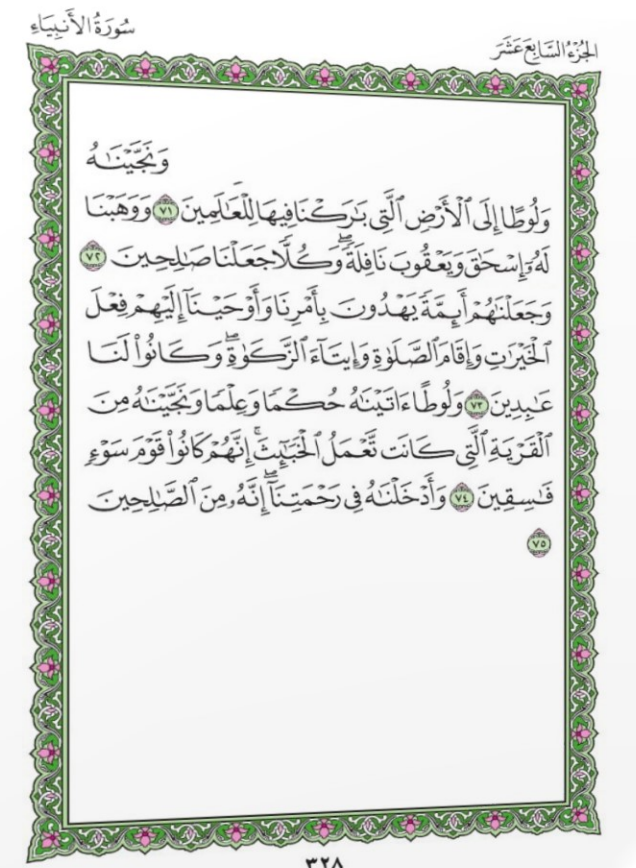 سُورَةُ الأَنبِيَاءِ
الجُزْءُ السَّابِعَ عَشَرَ
وَنَجَّيْنَٰهُ
وَلُوطًا إِلَى ٱلْأَرْضِ ٱلَّتِى بَٰرَكْنَا فِيهَا لِلْعَٰلَمِينَ ٧١ وَوَهَبْنَا
لَهُۥٓ إِسْحَٰقَ وَيَعْقُوبَ نَافِلَةً ۖ وَكُلًّا جَعَلْنَا صَٰلِحِينَ ٧٢
وَجَعَلْنَٰهُمْ أَئِمَّةً يَهْدُونَ بِأَمْرِنَا وَأَوْحَيْنَآ إِلَيْهِمْ فِعْلَ
ٱلْخَيْرَٰتِ وَإِقَامَ ٱلصَّلَوٰةِ وَإِيتَآءَ ٱلزَّكَوٰةِ ۖ وَكَانُوا۟ لَنَا
عَٰبِدِينَ ٧٣ وَلُوطًا ءَاتَيْنَٰهُ حُكْمًا وَعِلْمًا وَنَجَّيْنَٰهُ مِنَ
ٱلْقَرْيَةِ ٱلَّتِى كَانَت تَّعْمَلُ ٱلْخَبَٰٓئِثَ ۗ إِنَّهُمْ كَانُوا۟ قَوْمَ سَوْءٍ
فَٰسِقِينَ ٧٤ وَأَدْخَلْنَٰهُ فِى رَحْمَتِنَآ ۖ إِنَّهُۥ مِنَ ٱلصَّٰلِحِينَ
٧٥
٣٢٨